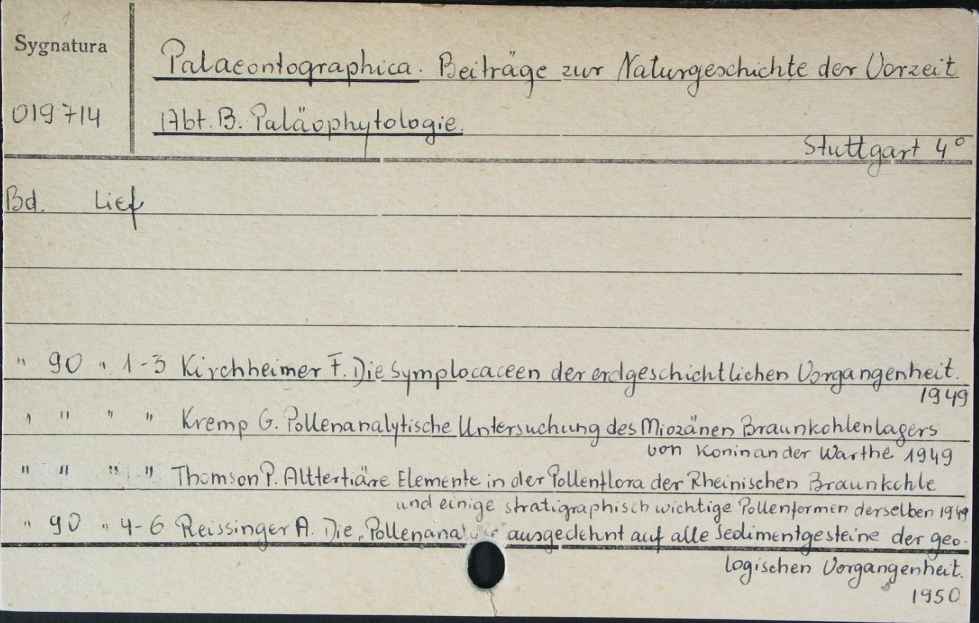 Sygnatura
019714
Palaeontographica. Beiträge zur Naturgeschichte der Vorzeit
Abt. B. Paläophytologie.
Stuttgart 4°
Bd. Lief
" 90 " 1-3 Kirchheimer F. Die Symplocaceen der erdgeschichtlichen Vorgangenheit.
1949
" " " " Kremp G. Pollenanalytische Untersuchung des Miozänen Braunkohlenlagers
von Konin an der Warthe 1949
" " " " Thomson P. Alttertiäre Elemente in der Pollenflora der Rheinischen Braunkohle
und einige stratigraphisch wichtige Pollenformen derselben 1949
" 90 " 4-6 Reissinger A. Die „Pollenana ausgedehnt auf alle Sedimentgesteine der geo-
logischen Vorgangenheit.
1950